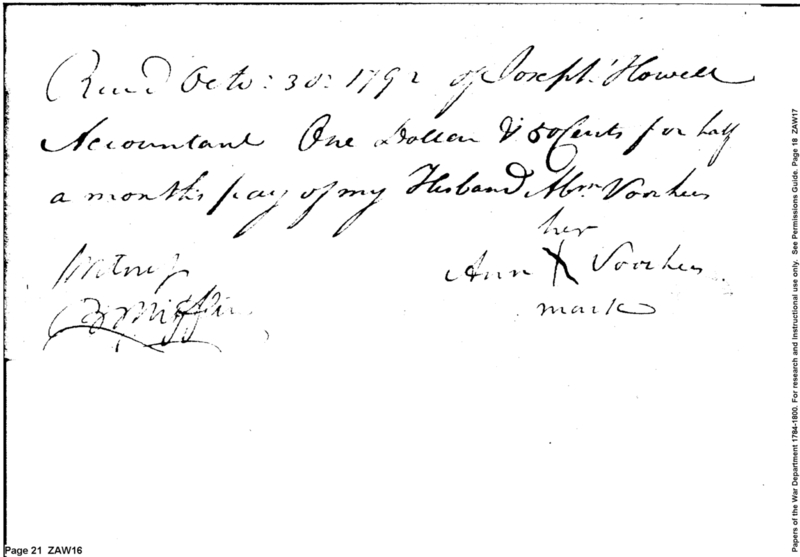 Recd Octo: 30: 1792 of Joseph Howell
Accountant One Dollar & 50 Cents for half
a months pay of my Husband Abrm Voorhees
her
Ann X Voorhees
mark
Witness
B Mifflin
Page 21 ZAW16
Papers of the War Department 1784-1800. For research and Instructional use only. See Permissions Guide. Page 18 ZAW17